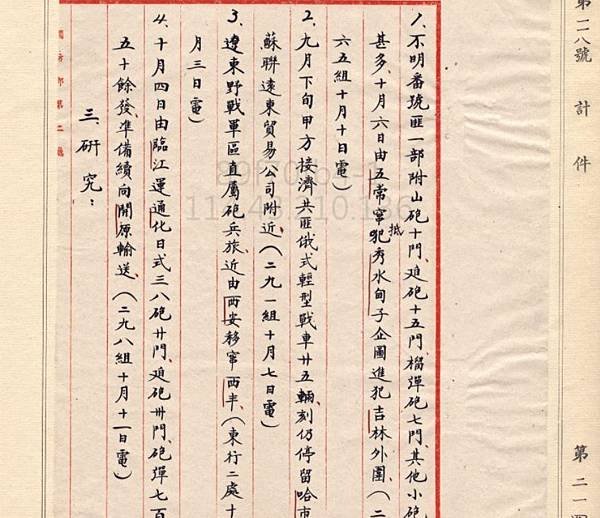 第二八號 計 件 第二一
1.不明番號匪一部附山砲十門、迫砲十五門榴彈砲七門、其他小砲
甚多、十月六日由五常竄抵犯秀水甸子企圖進犯吉林外圍、(二
六五組十月十日電)
2.九月下旬甲方接濟共匪俄式輕型戰車廿五輛、刻仍停留哈市
蘇聯遠東貿易公司附近、(二九一組十月七日電)
3.遼東野戰軍區直屬砲兵旅、近由西安移竄西丰、(東行二處十
月三日電)
4.十月四日由臨江運通化日式三八砲廿門、迫砲卅門、砲彈七百
五十餘發、準備續向開原輸送、(二九八組十月十一日電)
三、研究:
國防部第二廳